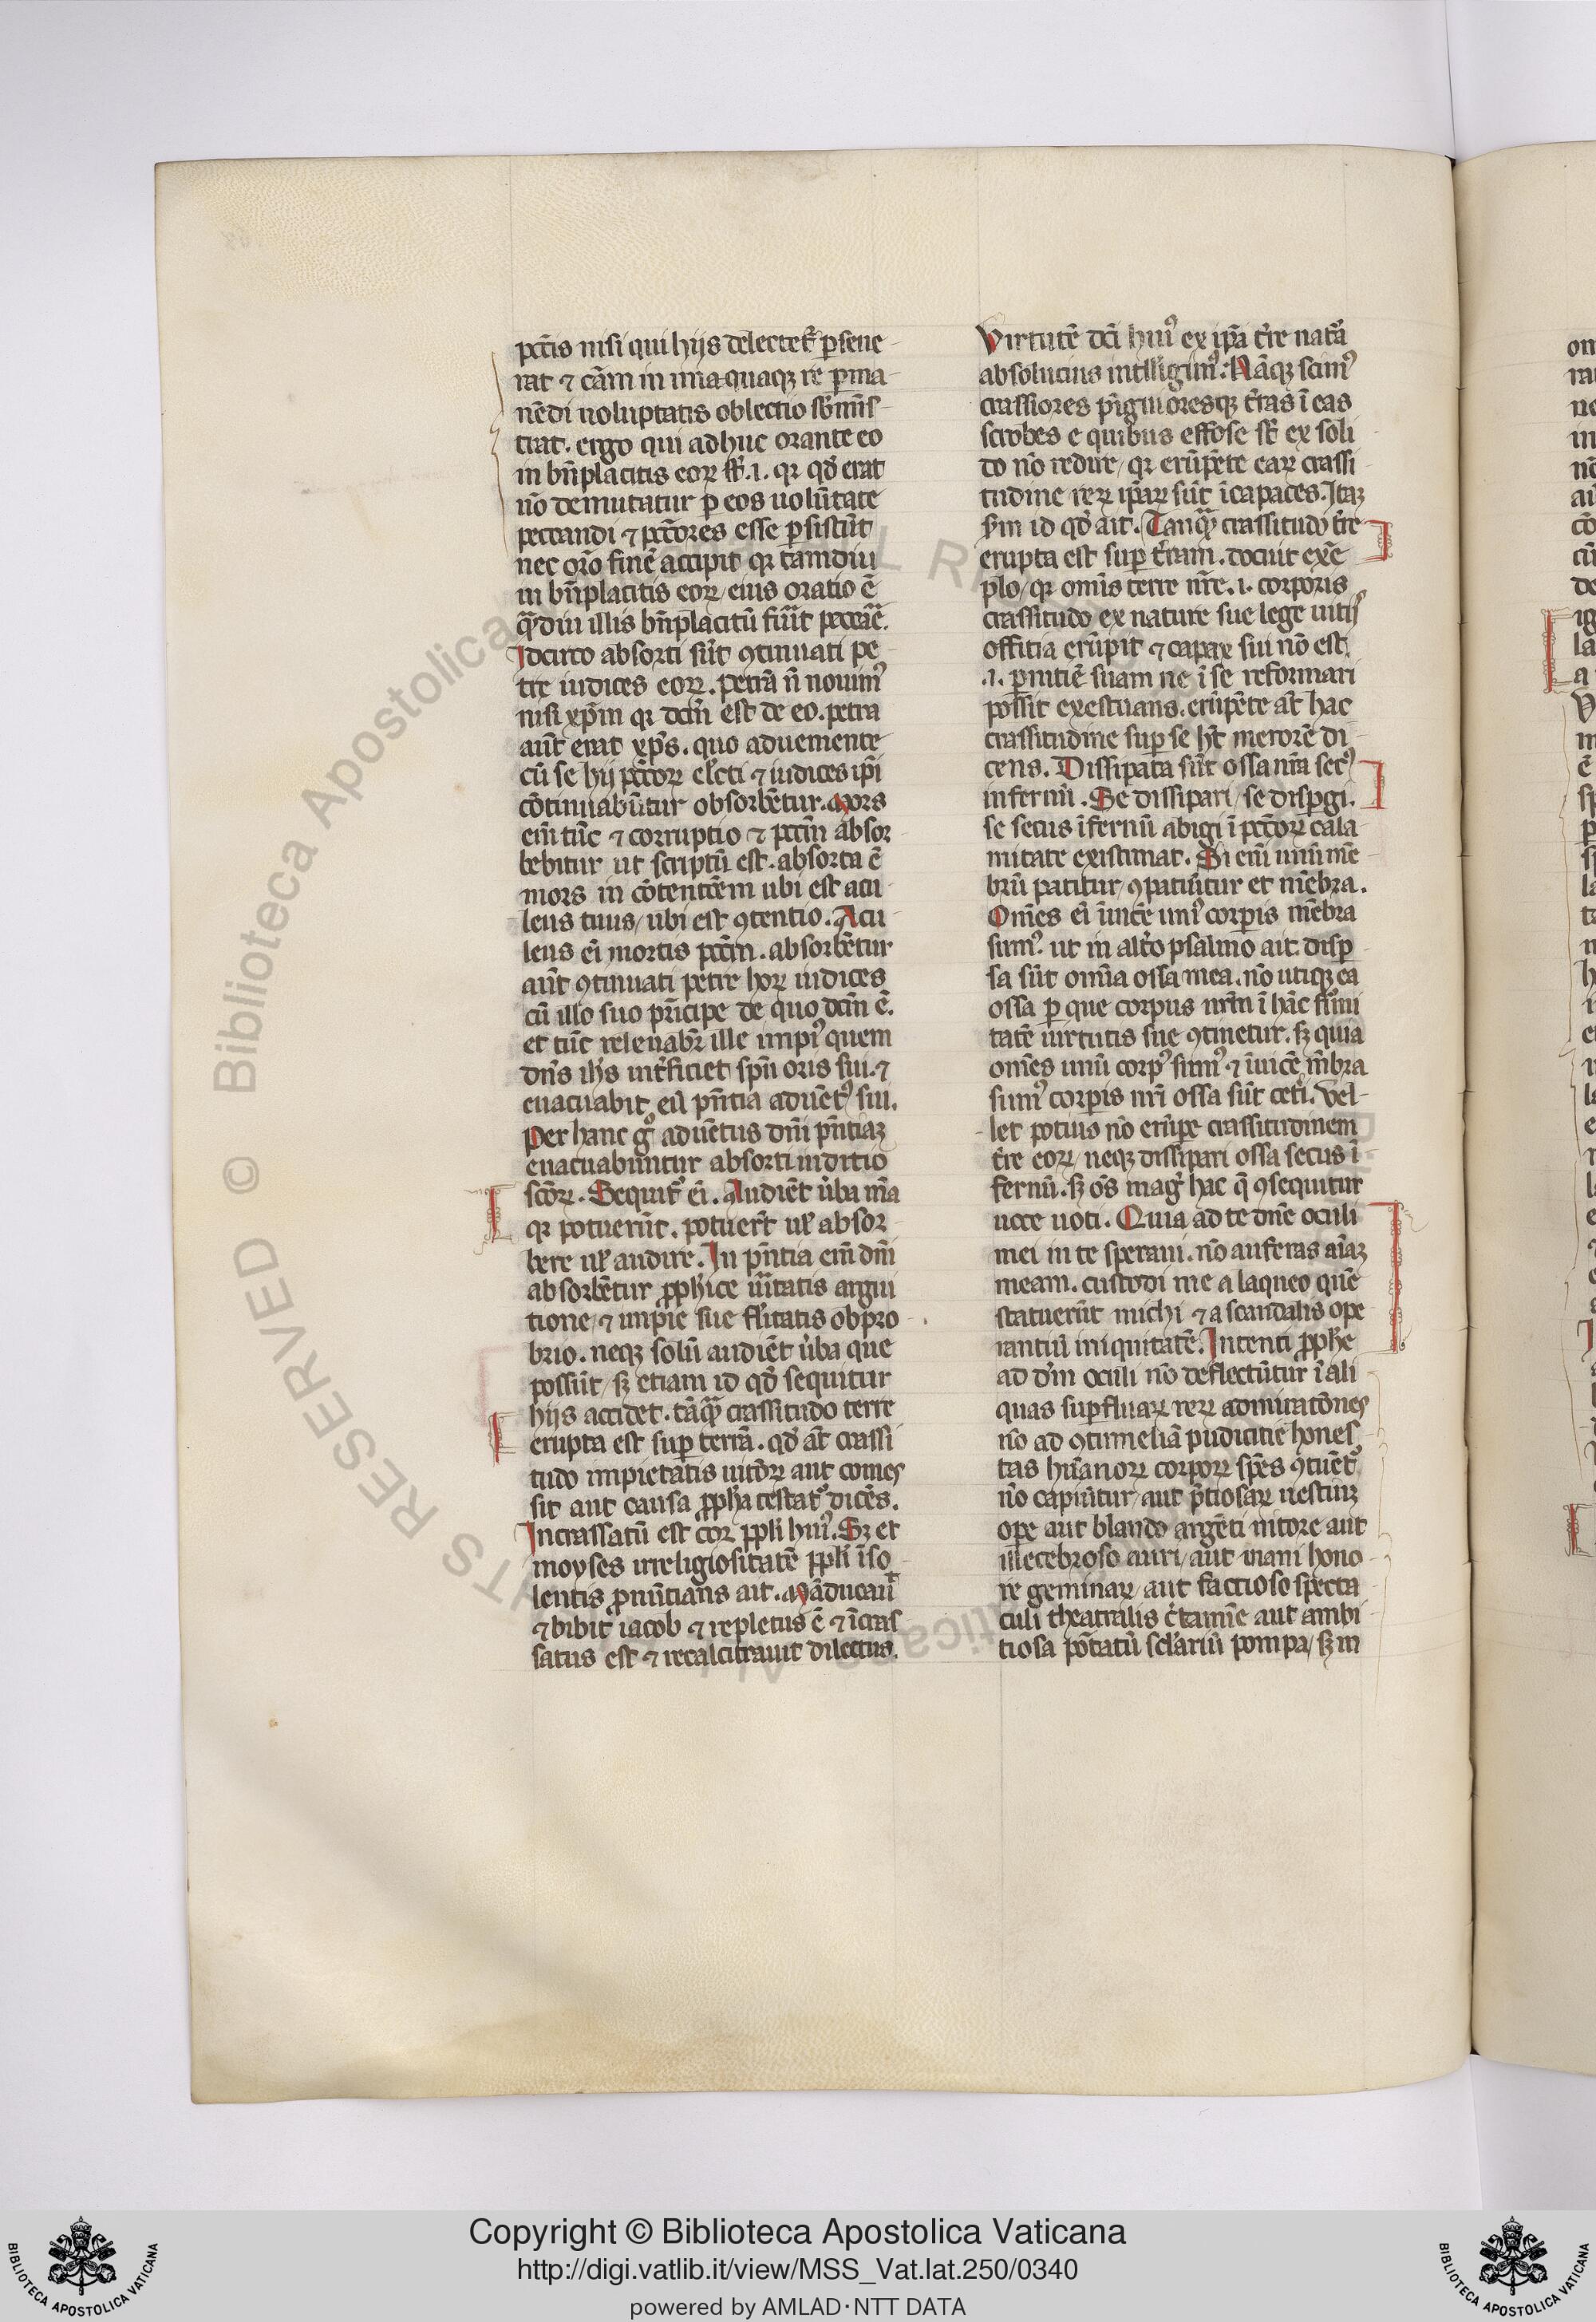 pctīs nisi qui hijs delectet᷑ ꝑseue
rat ⁊ cām in unaquaqꝫ re ꝑma
nēdi uoluptatis oblectio sb̄mīs
trat. ergo qui adhuc orante eo
in bn̄placitis eoꝝ st̄. i. qꝛ qd̓ erat
nō demutatur ꝑ eos uolūtate
peccandi ⁊ pctōres esse ꝑsistūt
nec orō finē accipit qꝛ tamdiu
in bn̄placitis eoꝝ eius oratio ē
qͣmdiu illis bn̄placitū fu͛it peccaē.
Idcirco absorti sūt ꝯtinuati pe
tre iudices eoꝝ. petrā n̄ nouimꝰ
nisi xp̄m qꝛ dcm̄ est de eo. petra
aūt erat xp̄s. quo adueniente
cū se hij pctōꝝ electi ⁊ iudices ip̄i
cōtinuabūtur obsorbētur. Mors
em̄ tūc ⁊ corruptio ⁊ pctm̄ absor
bebitur ut scriptū est. absorta ē
mors in cōtentōem ubi est acu
leus tuus, ubi est ꝯtentio. Acu
leus eī mortis pctm̄. absorbētur
aūt ꝯtinuati petre hoꝝ iudices
cū illo suo prīcipe de quo dcm̄ ē.
et tūc releuabr̄ ille impiꝰ quem
dn̄s ih̄s int͛ficiet spū oris sui. ⁊
euacuabit eū pn̄tia aduētꝰ sui.
Per hanc gͦ aduētus dn̄i pn̄tiaꝫ
euacuabuntur absorti iuditio
scōꝝ. Sequit᷑ eī. Audiēt u͛ba m̄a
qꝛ potuerūt. potuer̄t uꝉ absor
bere uꝉ audire. In pn̄tia em̄ dn̄i
absorbētur ꝓph̄ice u͛itatis argui
tione, ⁊ impie sue fl̓itatis obpro
brio. neqꝫ solū audiēt u͛ba que
possūt, sꝫ etiam id qd̓ sequitur
hijs accidet. tāqͣm crassitudo terre
erupta est suꝑ terrā. qd̓ at̄ crassi
tudo impietatis uitōꝝ aut comes
sit aut causa ꝓph̄a testat᷑ dicēs.
Incrassatū est cor pp̄li huiꝰ. Sꝫ et
moyses irreligiositatē pp̄li īso
lentis ꝓnūtians ait. Māducaū
⁊ bibit iacob ⁊ repletus ē ⁊ īcras
satus est ⁊ recalcitrauit dilectus.
Virtutē dc̄i huiꝰ ex ip̄a t͛re natᷓa
absolutius intelligimꝰ. Nāqꝫ scimꝰ
crassiores pīguioresqꝫ t͛ras ī eas
scrobes e quibus effose st̄ ex soli
to nō redire, qꝛ erūpēte eaꝝ crassi
tudine reꝝ ip̄aꝝ sūt īcapaces. Itaqꝫ
ẜm id qd̓ ait. Tanqͣm crassitudo t͛re
erupta est suꝑ t͛ram. docuit exē
plo, qꝛ omīs terre nr̄e. i. corporis
crassitudo ex nature sue lege uitij
offitia erūpit ⁊ capax sui nō est.
.i. ꝑnitiē suam ne ī se reformari
possit exestuans. erūpēte at̄ hac
crassitudine suꝑ se h̄t merorē di
cens. Dissipata sūt ossa nr̄a secꝰ
infernū. Se dissipari, se disꝑgi.
se secus īfernū abigi ī pctōꝝ cala
mitate existimat. Si em̄ unū mē
brū patitur, ꝯpatiūtur et mēbra.
Omēs eī īuicē uniꝰ corꝑis mēbra
sumꝰ. ut in alt͛o psalmo ait. disꝑ
sa sūt omīa ossa mea. nō utiqꝫ ea
ossa ꝑ que corpus nr̄m ī hāc firmi
tatē uirtutis sue ꝯtinetur. sꝫ quia
omēs unū corpꝰ sumꝰ ⁊ īuicē mēbra
sumꝰ corꝑis nr̄i ossa sūt cet͛i. Vel
let potius nō erūpe crassitudinem
t͛re eoꝝ, neqꝫ dissipari ossa secus ī
fernū. sꝫ oēs magͥ hac q̄ ꝯsequitur
uoce uoti. Quia ad te dn̄e oculi
mei in te speraui. nō auferas aīaꝫ
meam. custodi me a laqueo quē
statuerūt michi ⁊ a scandalis ope
rantiū iniquitatē. Intenti ꝓph̄e
ad dn̄m oculi nō deflectūtur ī ali
quas suꝑfluaꝝ reꝝ admiratōnes
nō ad ꝯtumeliā pudicitie hones
tas hūanoꝝ corpoꝝ spēs ꝯtuēt᷑
nō capiūtur, aut p͛tiosaꝝ uestiuꝫ
ope aut blando argēti nitore aut
illecebroso auri, aut inani hono
re geminaꝝ, aut factioso specta
culi theatralis c͛tamīe aut ambi
tiosa pōtatū sclāriū pompa, sꝫ in
Copyright © Biblioteca Apostolica Vaticana
http://digi.vatlib.it/view/MSS_Vat.lat.250/0340
powered by AMLAD·NTT DATA